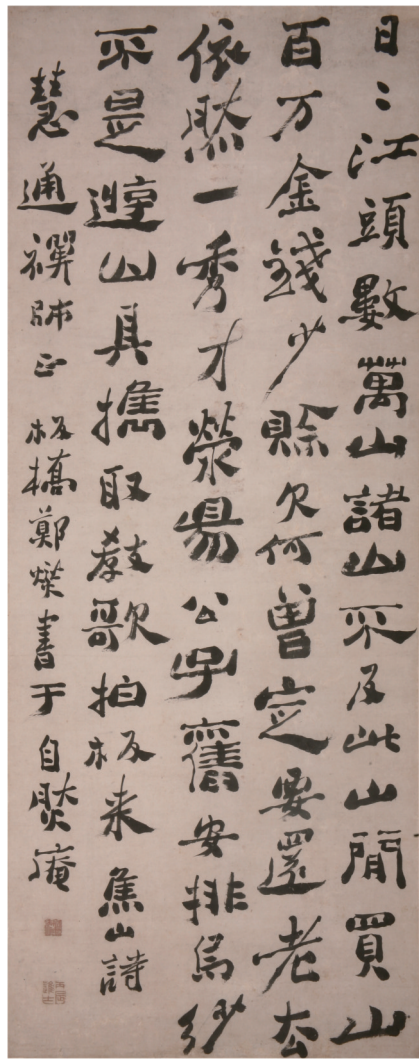 日〻江頭數萬山諸山不及此山閒買山
百万金錢少賒欠何曾定要還老去
依然一秀才滎昜公子舊安排烏紗
不是遊山具攜取教歌拍板来焦山詩
慧通禪師正 板橋鄭燮書于自然庵